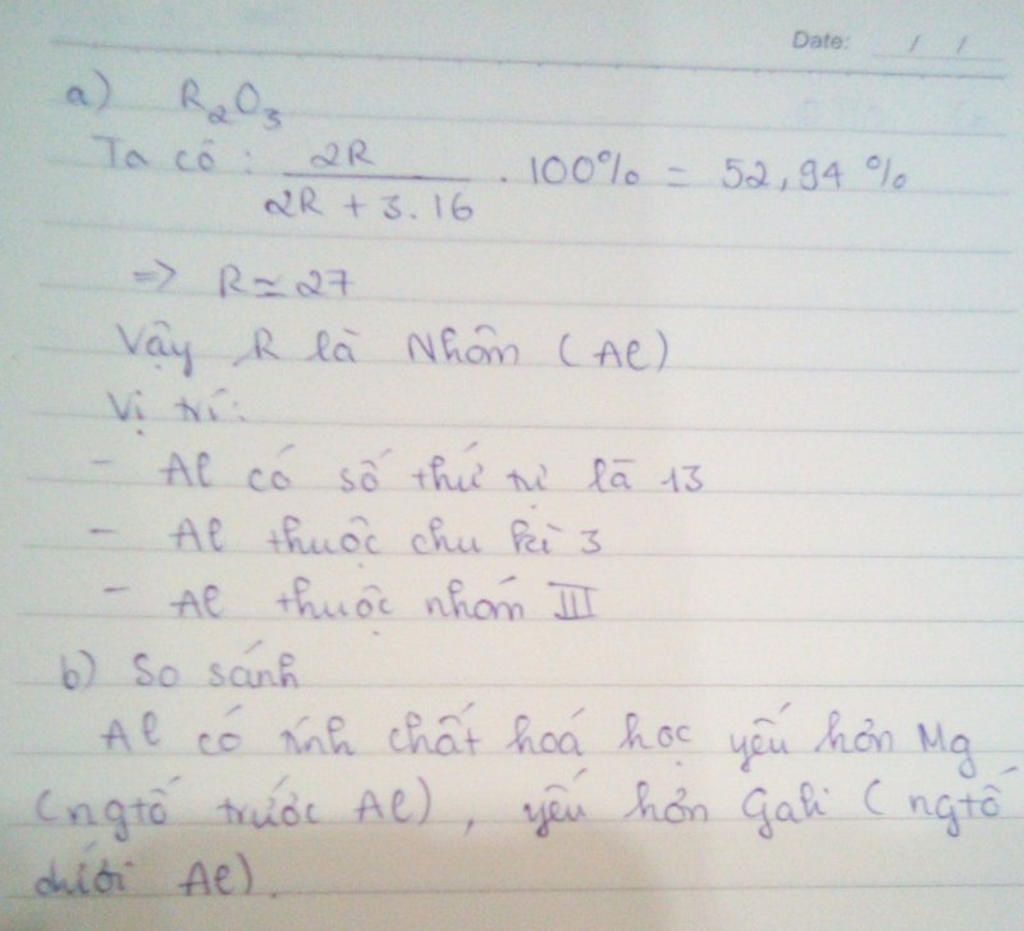 Date: / /
a) R₂O₃
Ta có: 2R / (2R + 3.16) . 100% = 52,94 %
=> R ≃ 27
Vậy R là Nhôm (Al)
Vị trí:
- Al có số thứ tự là 13
- Al thuộc chu kì 3
- Al thuộc nhóm III
b) So sánh
Al có tính chất hoá học yếu hơn Mg
(ngtố trước Al), yếu hơn Gali (ngtố
dưới Al).